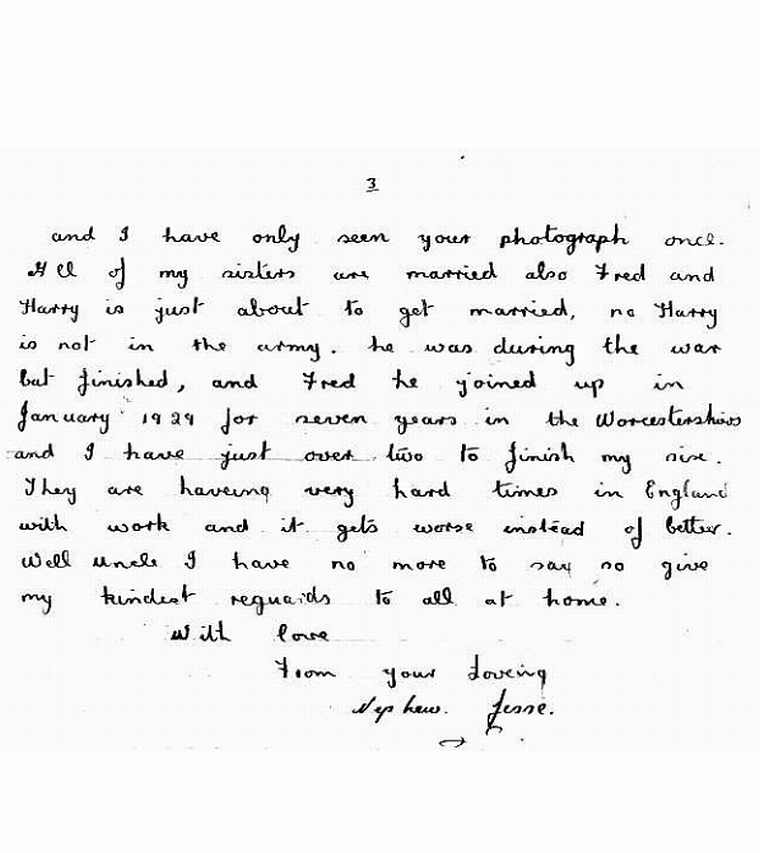 3
and I have only seen your photograph once.
All of my sisters are married also Fred and
Harry is just about to get married, no Harry
is not in the army. he was during the war
but finished, and Fred he joined up in
January 1929 for seven years in the Worcestershires
and I have just over two to finish my six.
They are haveing very hard times in England
with work and it gets worse instead of better.
Well uncle I have no more to say so give
my kindest reguards to all at home.
With love
From your Loveing
Nephew. Jesse.